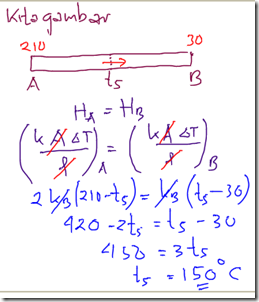 Kita gambar
210 30
A t5 B
H_A = H_B
(k A ΔT / l)_A = (k A ΔT / l)_B
2 k_B (210 - t5) = k_B (t5 - 30)
420 - 2t5 = t5 - 30
450 = 3t5
t5 = 150°C